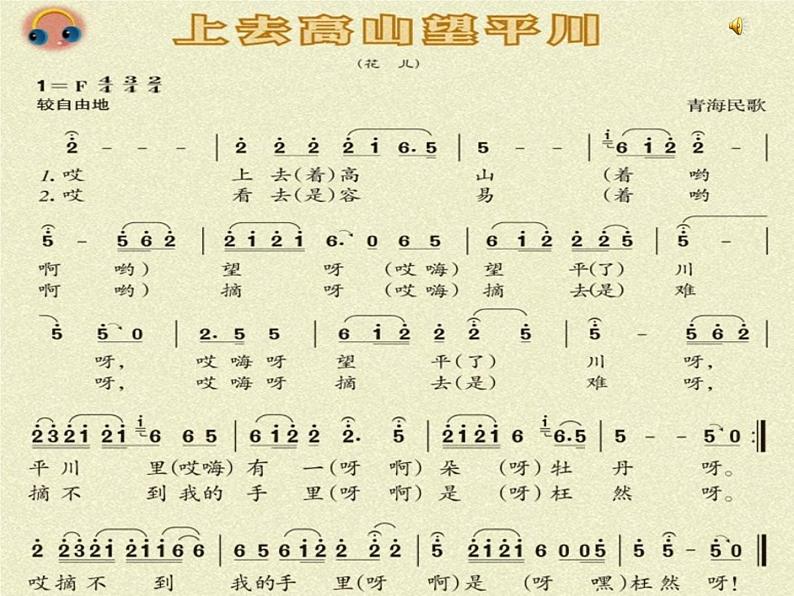 上去高山望平川
（花 儿）
1＝F 4/4 3/4 2/4
较自由地 青海民歌
2 - - - | 2 2 2 2 1 6. 5 | 5 - - | 6 1 2 2 - |
1.哎 上 去(着)高 山 (着 哟
2.哎 看 去(是)容 易 (着 哟
5 - 5 6 2 | 2 1 2 1 6. 0 6 5 | 6 1 2 2 2 5 | 5 -
啊 哟) 望 呀 (哎 嗨) 望 平(了) 川
啊 哟) 摘 呀 (哎 嗨) 摘 去(是) 难
5 5 0 | 2. 5 5 | 6 1 2 2 2 5 | 5 - 5 6 2 |
呀， 哎 嗨 呀 望 平(了) 川 呀，
呀， 哎 嗨 呀 摘 去(是) 难 呀，
2 3 2 1 2 1 6 6 5 | 6 1 2 2. 5 | 2 1 2 1 6 6. 5 | 5 - - 5 0 :|
平 川 里(哎嗨) 有 一(呀 啊) 朵 (呀) 牡 丹 呀。
摘 不 到 我的 手 里(呀 啊) 是 (呀) 枉 然 呀。
2 2 3 2 1 2 1 1 6 6 | 6 5 6 1 2 2. 5 | 2 1 2 1 6 6 0 0 5 | 5 - - 5 0 |
哎 摘 不 到 我的手 里(呀 啊)是 (呀 嘿)枉 然 呀！